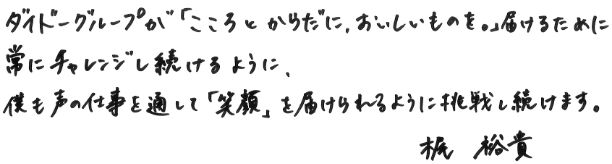 ダイドーグループが「こころとからだに、おいしいものを。」届けるために
常にチャレンジし続けるように、
僕も声の仕事を通して「笑顔」を届けられるように挑戦し続けます。
梶 裕貴